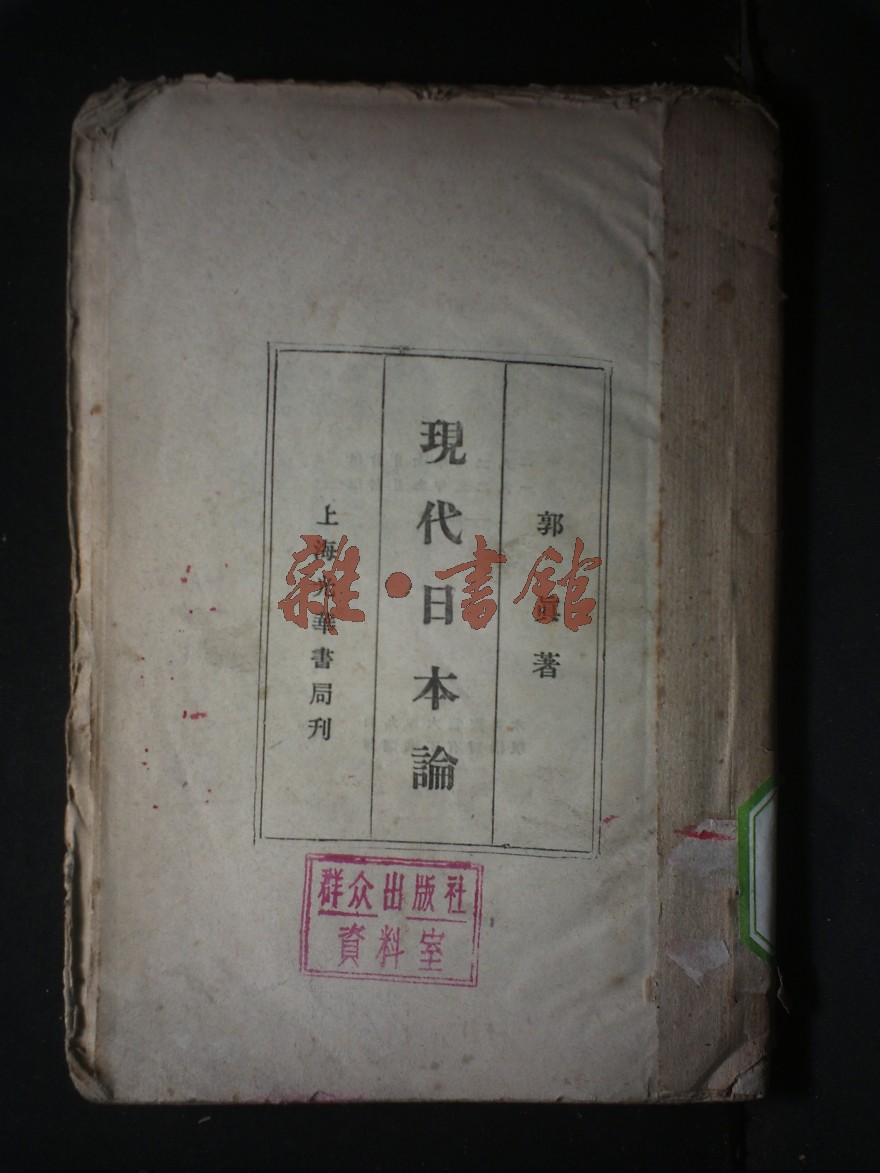 郭眞著
現代日本論
上海光華書局刊
雜·書館
群众出版社
資料室